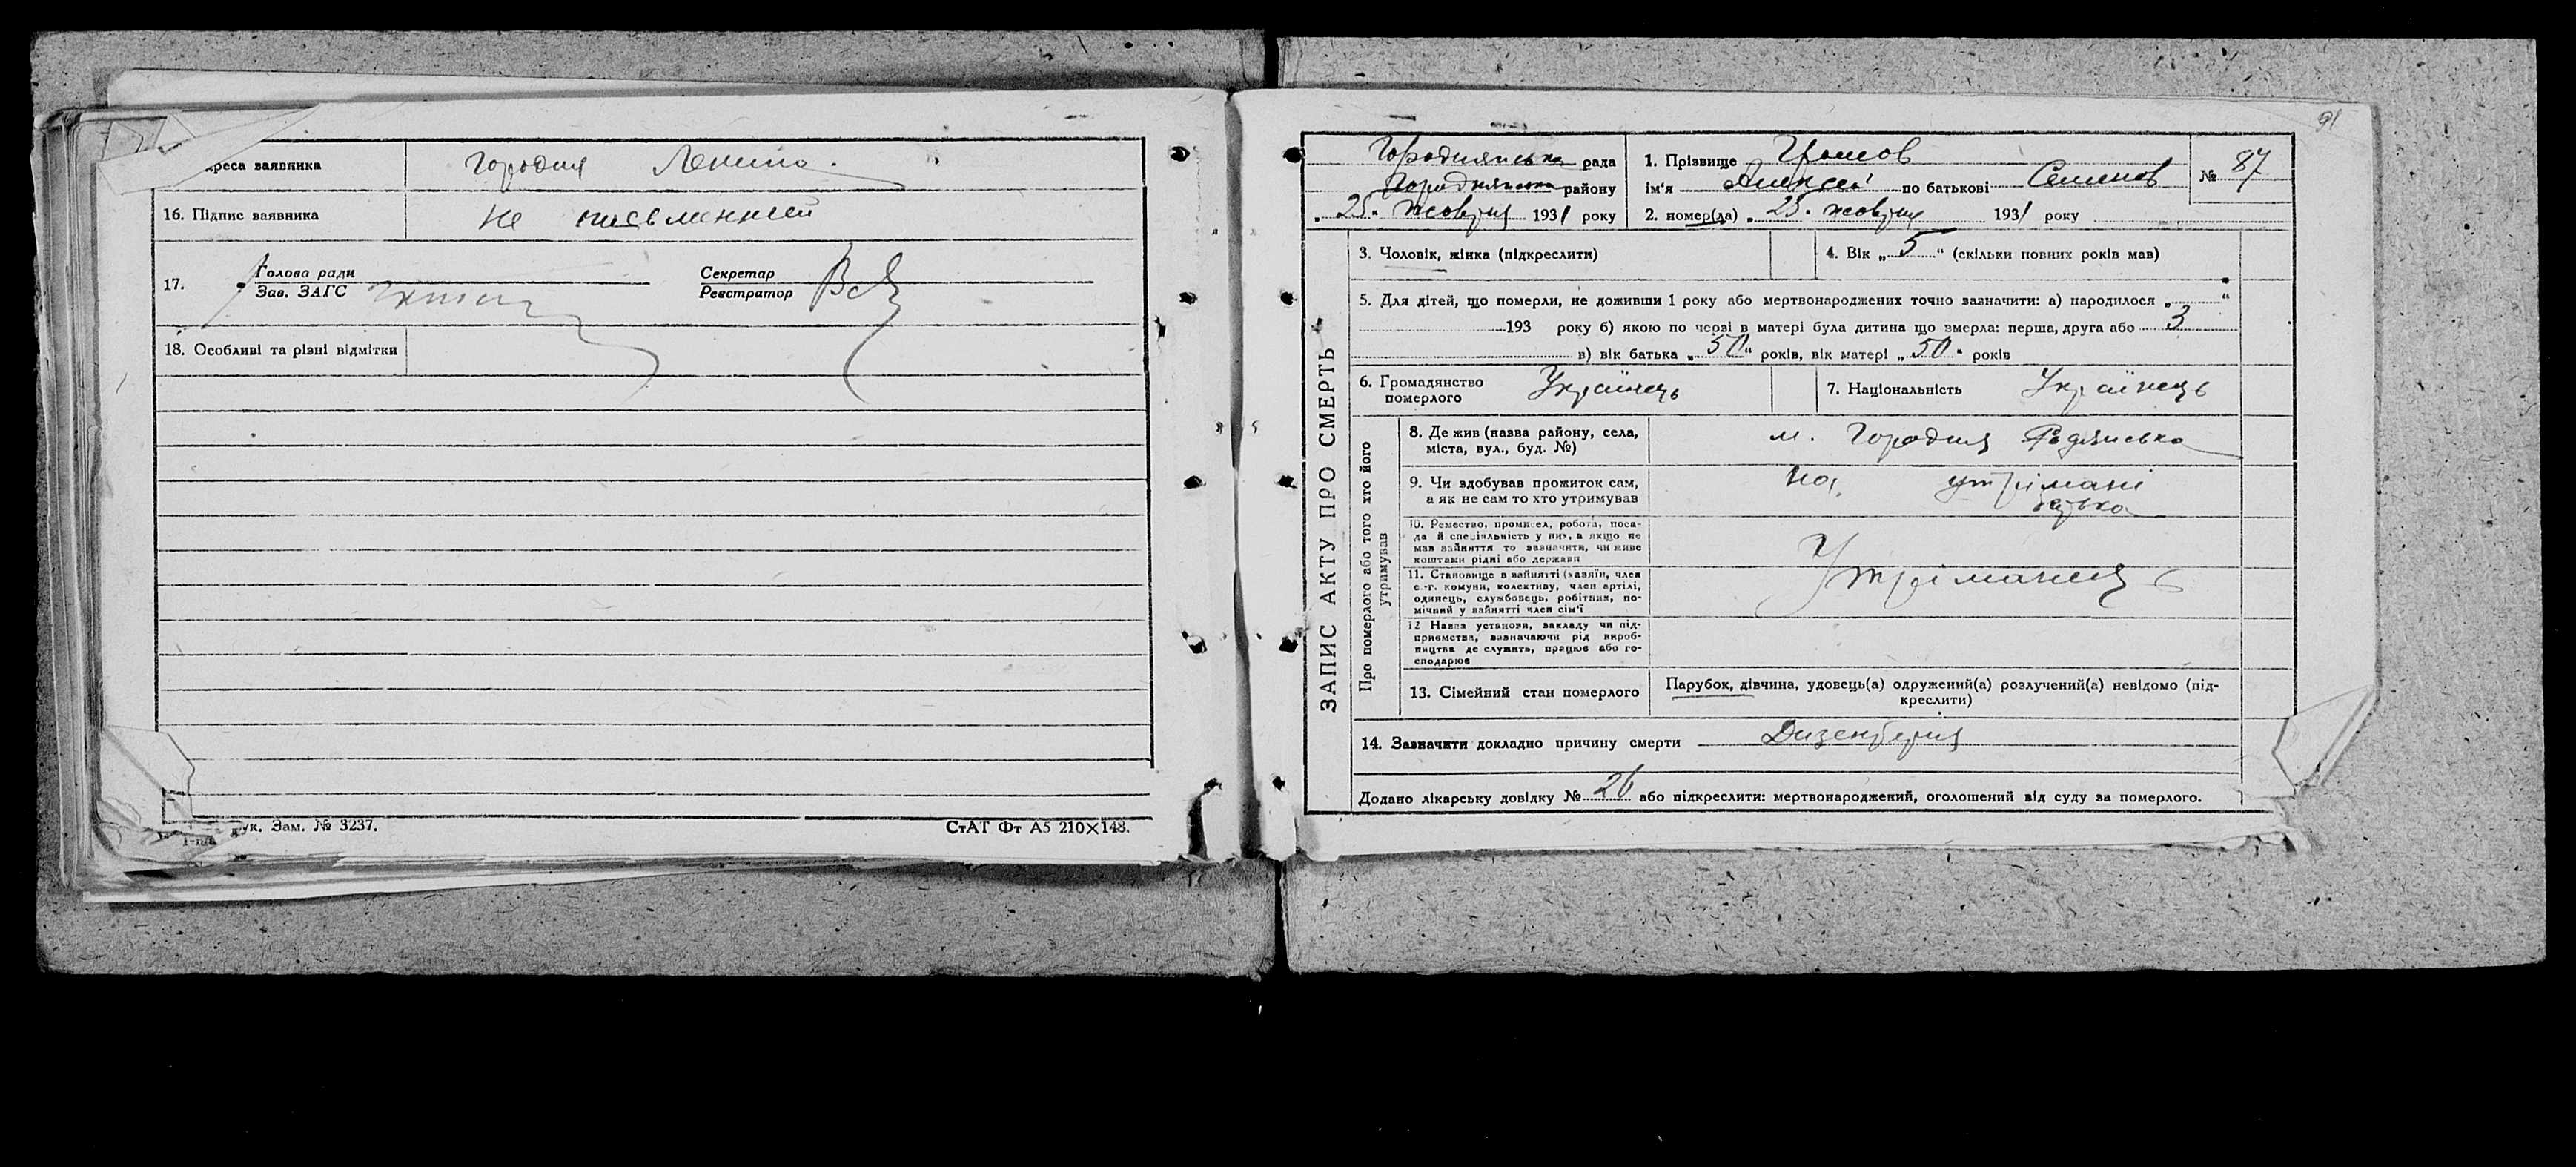 реса заявника Городня Леніна.
16. Підпис заявника Не письменний
17. Голова ради
Зав. ЗАГС
Секретар
Реєстратор
18. Особливі та різні відмітки
ук. Зам. № 3237.
СтАТ Фт А5 210×148.
91
Городнянська рада
Городнянська району
" 25 " жовтня 1931 року
1. Прізвище Громов
ім'я Алексей по батькові Семенов
2. помер(ла) " 25 " жовтня 1931 року
№ 87
ЗАПИС АКТУ ПРО СМЕРТЬ
3. Чоловік, жінка (підкреслити)
4. Вік „ 5 " (скільки повних років мав)
5. Для дітей, що померли, не доживши 1 року або мертвонароджених точно зазначити: а) народилося „ "
193 року б) якою по черзі в матері була дитина що вмерла: перша, друга або 3
в) вік батька „ 50 " років, вік матері „ 50 " років
6. Громадянство
померлого
Українець
7. Національність Українець
Про померлого або того хто його
утримував
8. Де жив (назва району, села,
міста, вул., буд. №)
м. Городня Радянська
9. Чи здобував прожиток сам,
а як не сам то хто утримував
на утримані
батька
10. Ремество, промисел, робота, поса-
да й спеціяльність у них, а якщо не
мав зайняття то зазначити, чи живе
коштами рідні або держави
11. Становище в зайнятті (хазяїн, член
с.-г. комуни, колективу, член артілі,
одинець, службовець, робітник, по-
мічний у зайнятті член сім'ї
Утріманець
12 Назва установи, закладу чи під-
приємства, зазначаючи рід вироб-
ництва де служить, працює або го-
сподарює
13. Сімейний стан померлого
Парубок, дівчина, удовець(а) одружений(а) розлучений(а) невідомо (під-
креслити)
14. Зазначити докладно причину смерти Дизентерия
Додано лікарську довідку № 26 або підкреслити: мертвонароджений, оголошений від суду за померлого.